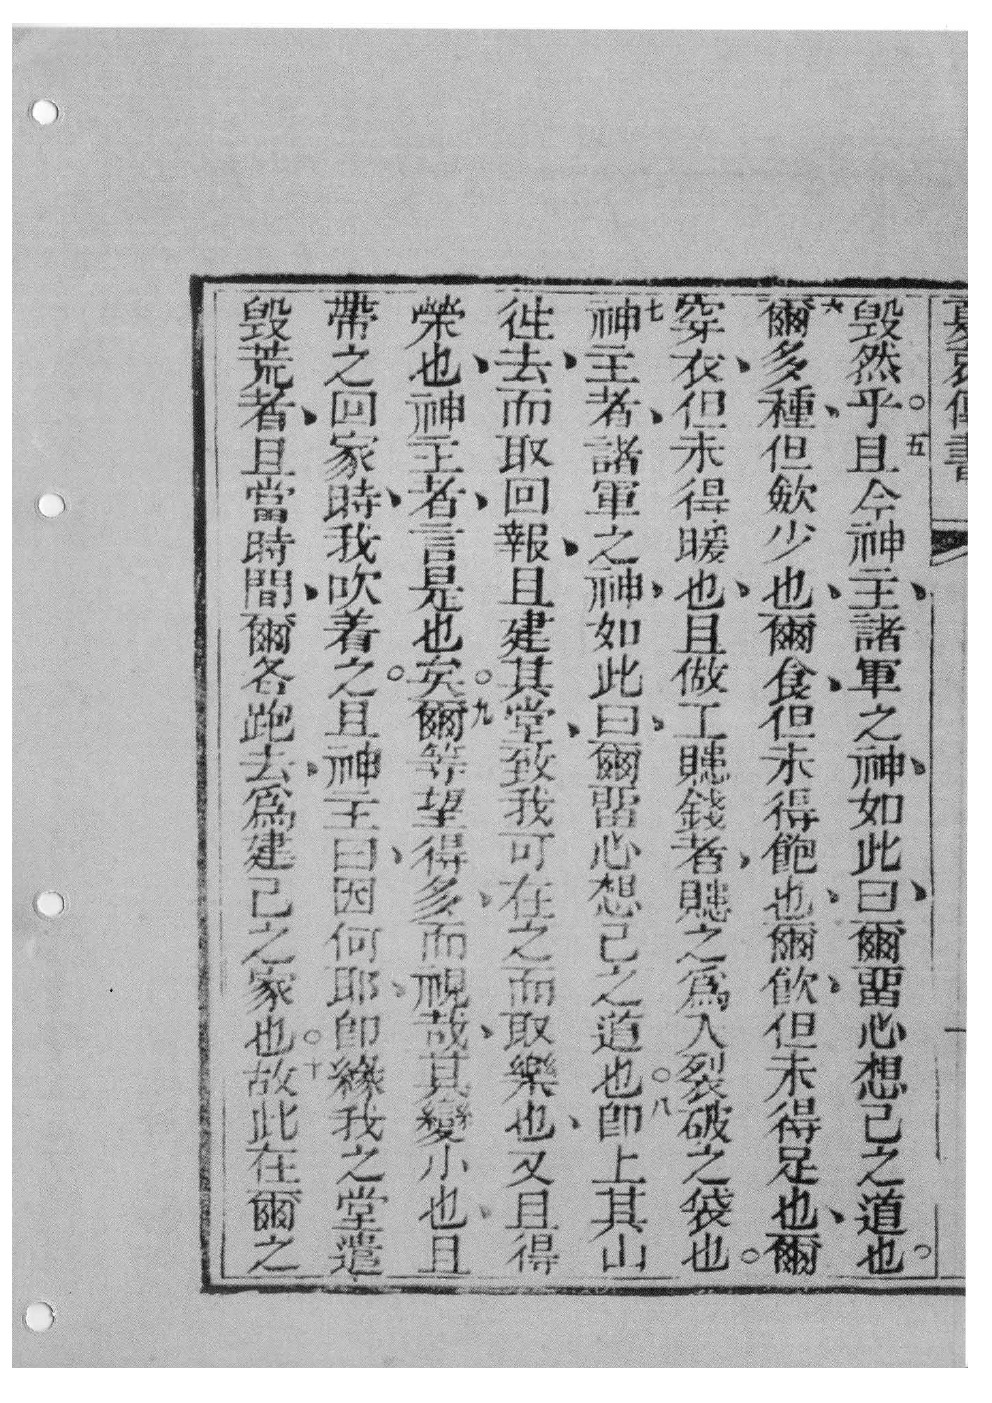 毀然乎。五且今神主、諸軍之神、如此曰、爾畱心想己之道也。
六爾多種、但歛少也、爾食、但未得飽也、爾飲、但未得足也、爾
穿衣、但未得暖也、且做工賺錢者、賺之爲入裂破之袋也。
七神主者、諸軍之神、如此曰、爾畱心想己之道也。八卽上其山
徃去、而取回報、且建其堂、致我可在之而取樂也、又且得
榮也、神主者、言是也。九矣爾等望得多、而視哉、其變小也、且
帶之回家時、我吹着之。且神主曰、因何耶、卽緣我之堂遣
毀荒者、且當時間、爾各跑去、爲建己之家也。十故此在爾之